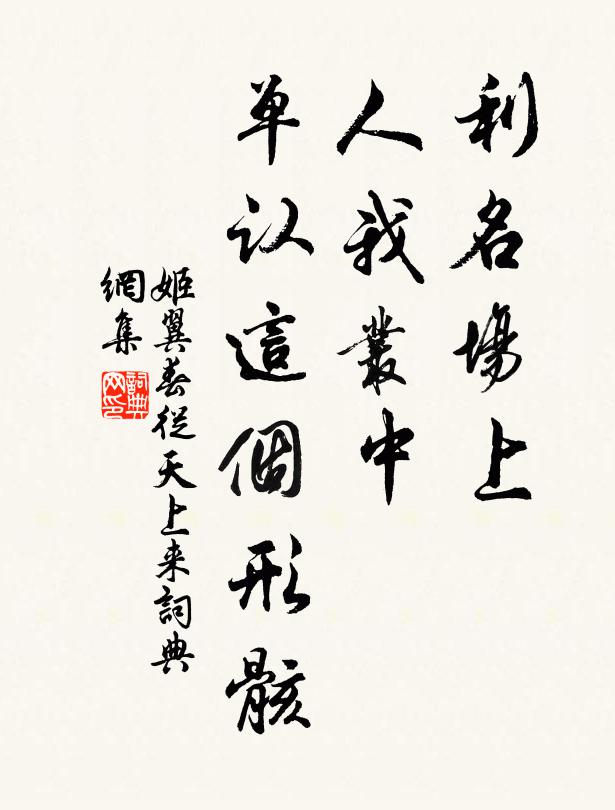 利名場上
人我叢中
单认這個形骸
姬翼春從天上来詞典
網集
詞典
网印